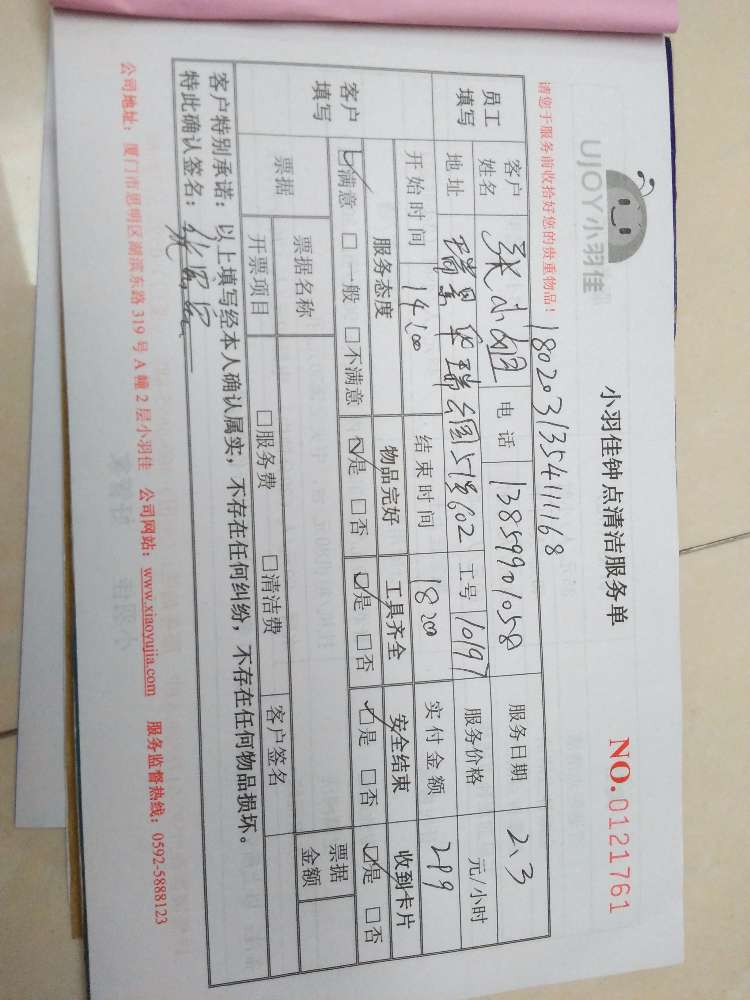 UJOY小羽佳
小羽佳钟点清洁服务单
NO.0121761
请您于服务前收拾好您的贵重物品！
180203135411168
员工填写 客户姓名 张小姐 电话 13859901058 服务日期 2、3
地址 瑞景 602 工号 10197 服务价格 元/小时
开始时间 14:00 结束时间 18:00 实付金额 299
客户填写 服务态度 物品完好 工具齐全 安全结束 收到卡片
☑满意 □一般 □不满意 ☑是 □否 ☑是 □否 ☑是 □否 ☑是 □否
票据 票据名称 客户签名 票据金额
开票项目 □服务费 □清洁费
客户特别承诺：以上填写经本人确认属实，不存在任何纠纷，不存在任何物品损坏。
特此确认签名：
公司地址：厦门市思明区湖滨东路 319 号 A 幢 2 层小羽佳 公司网站：www.xiaoyujia.com 服务监督热线：0592-5888123